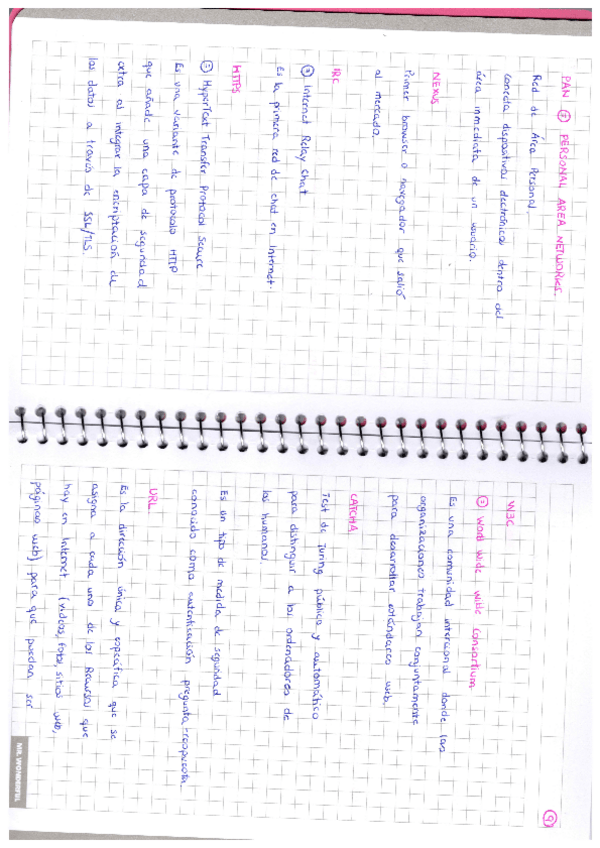 PAN = PERSONAL AREA NETWORKS.
Red de Área Personal.
Conecta dispositivos electrónicos dentro del
área inmediata de un usuario.
NEXUS
Primer browser o navegador que salió
al mercado.
IRC
= Internet Relay Chat
Es la primera red de chat en Internet.
HTTPS
= HyperText Transfer Protocol Secure
Es una variante de protocolo HTTP
que añade una capa de seguridad
extra al integrar la encriptación de
los datos a través de SSL/TLS.
9
W3C
= World Wide Web Consortium
Es una comunidad internacional donde las
organizaciones trabajan conjuntamente
para desarrollar estándares web.
CATCHA
Test de Turing público y automático
para distinguir a los ordenadores de
los humanos.
Es un tipo de medida de seguridad
conocido como autenticación pregunta-respuesta.
URL
Es la dirección única y específica que se
asigna a cada uno de los Recursos que
hay en Internet (videos, fotos, sitios web,
páginas web) para que puedan ser
MR. WONDERFUL